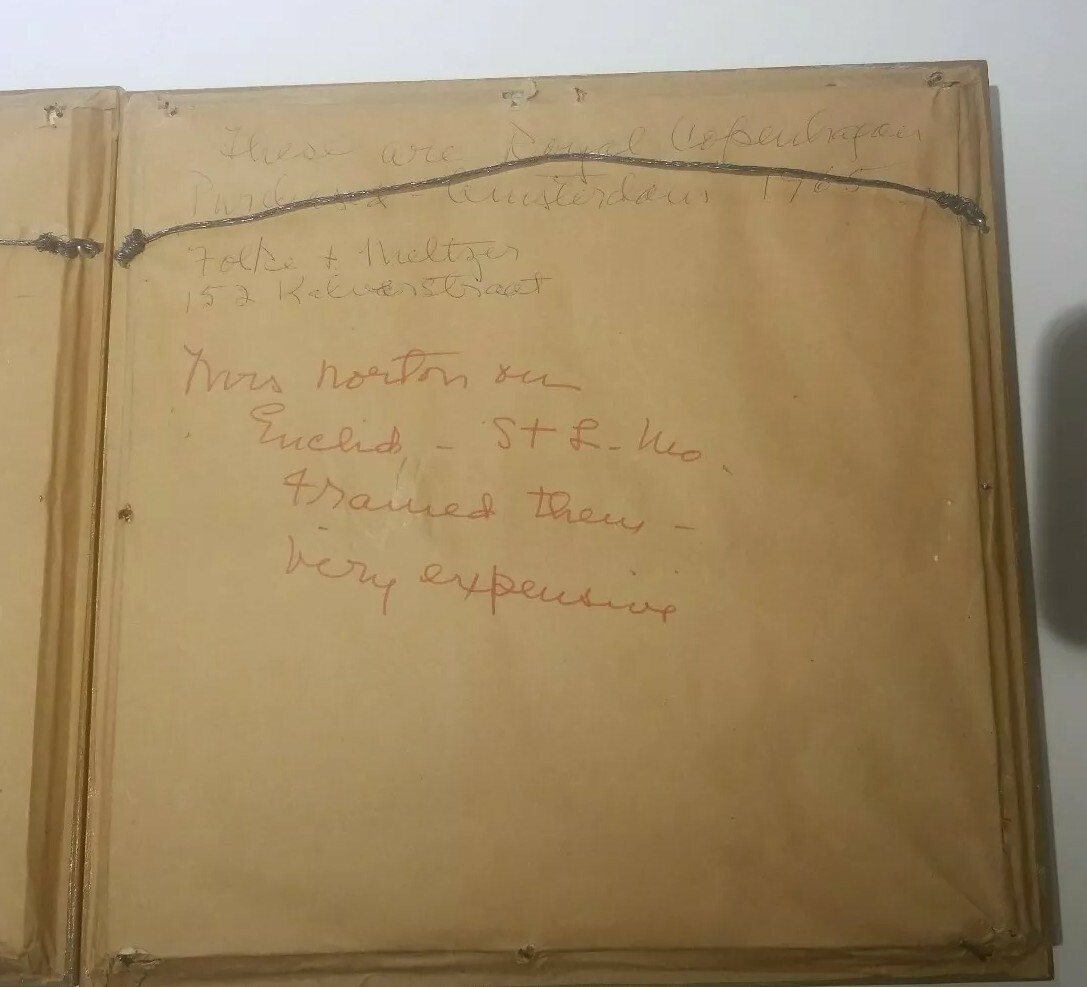 These are Royal Copenhagen
Purchased - Amsterdam 1965
Folke + Meltzer
152 Kalverstraat
Mrs Norton on
Euclid - St L. Mo.
framed them -
Very expensive